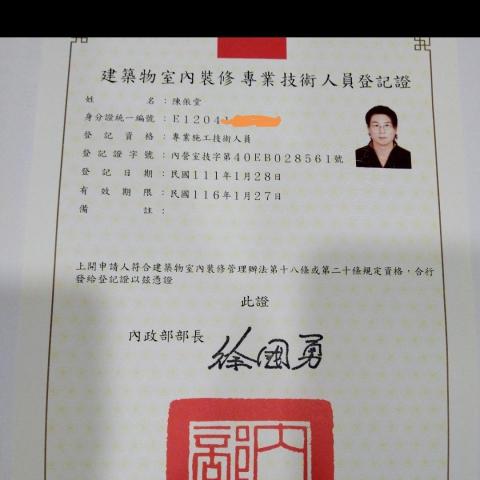 建築物室內裝修專業技術人員登記證
姓名：陳俶堂
身分證統一編號：E1204
登記資格：專業施工技術人員
登記證字號：內營室技字第40EB028561號
登記日期：民國111年1月28日
有效期限：民國116年1月27日
備註：
上開申請人符合建築物室內裝修管理辦法第十八條或第二十條規定資格，合行
發給登記證以茲憑證
此證
內政部部長 徐國勇
內
部